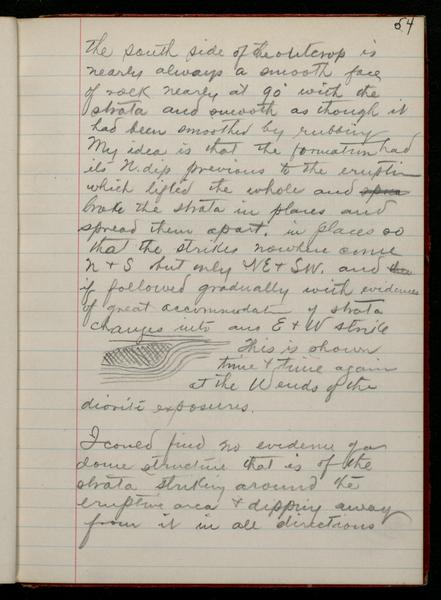 54
the south side of the outcrop is
nearly always a smooth face
of rock nearly at 90° with the
strata and smooth as though it
had been smoothed by rubbing
My idea is that the formation had
its N. dip previous to the eruption
which lifted the whole and
broke the strata in places and
spread them apart. in places so
that the strikes nowhere come
N & S but only NE & SW. and
if followed gradually with evidences
of great accommodation of strata
changes into an E & W strike
This is shown
time & time again
at the W ends of the
diorite exposures.
I could find no evidence of a
dome structure that is of the
strata striking around the
eruptive area & dipping away
from it in all directions